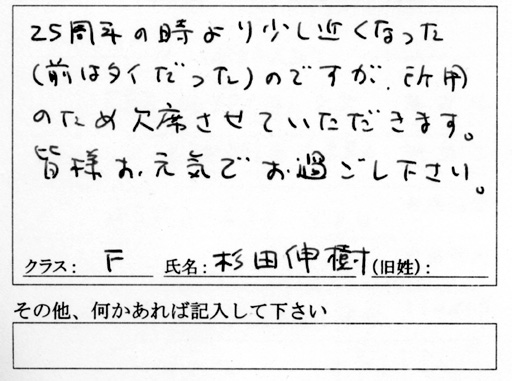 25周年の時より少し近くなった
(前はタイだった)のですが、所用
のため欠席させていただきます。
皆様お元気でお過ごし下さい。
クラス: F 氏名: 杉田伸樹 (旧姓):
その他、何かあれば記入して下さい